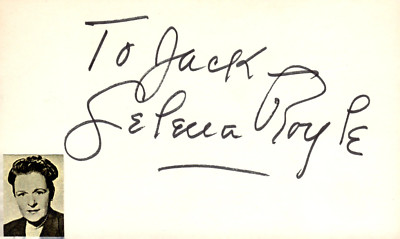 To Jack
Selena Royle